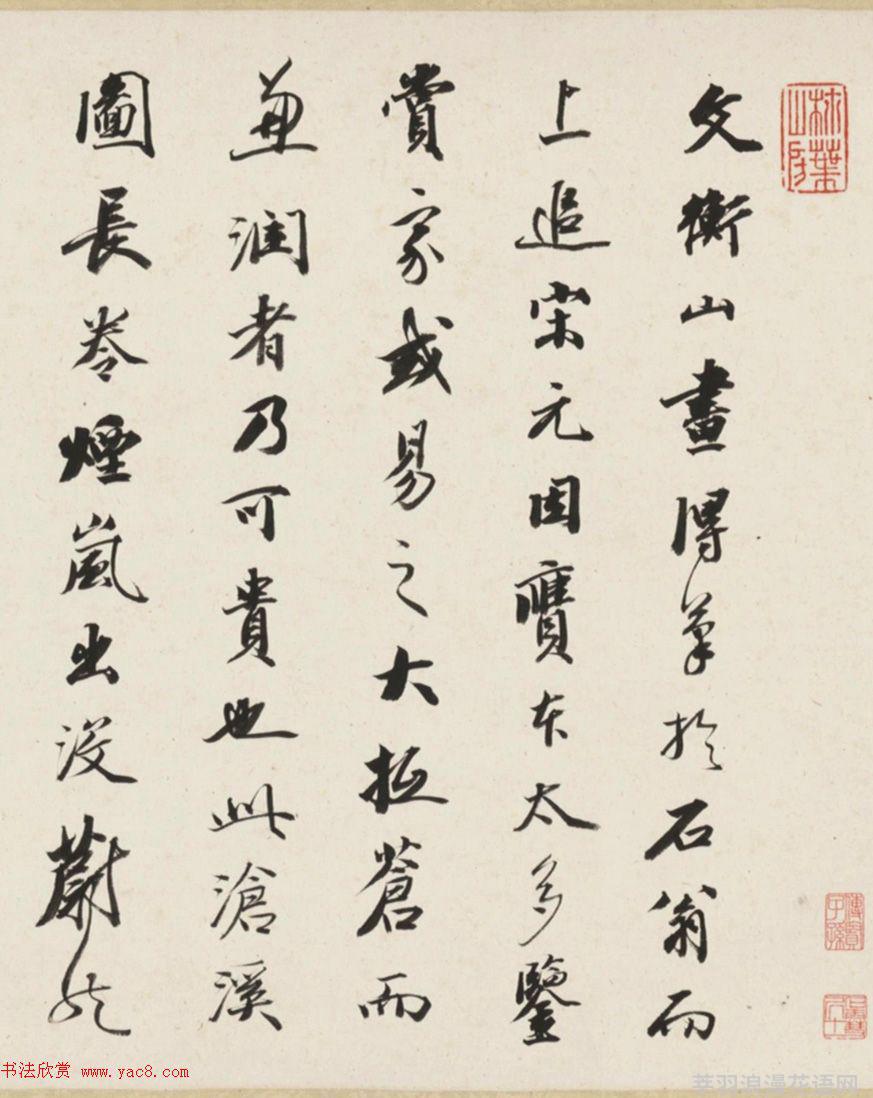 文衡山畫得筆於石翁而
上追宋元因贋本太多鑒
賞家或易之大抵蒼而
兼潤者乃可貴也此滄溪
圖長卷煙嵐出沒蔚然
书法欣赏 www.yac8.com
羽浪漫花语网